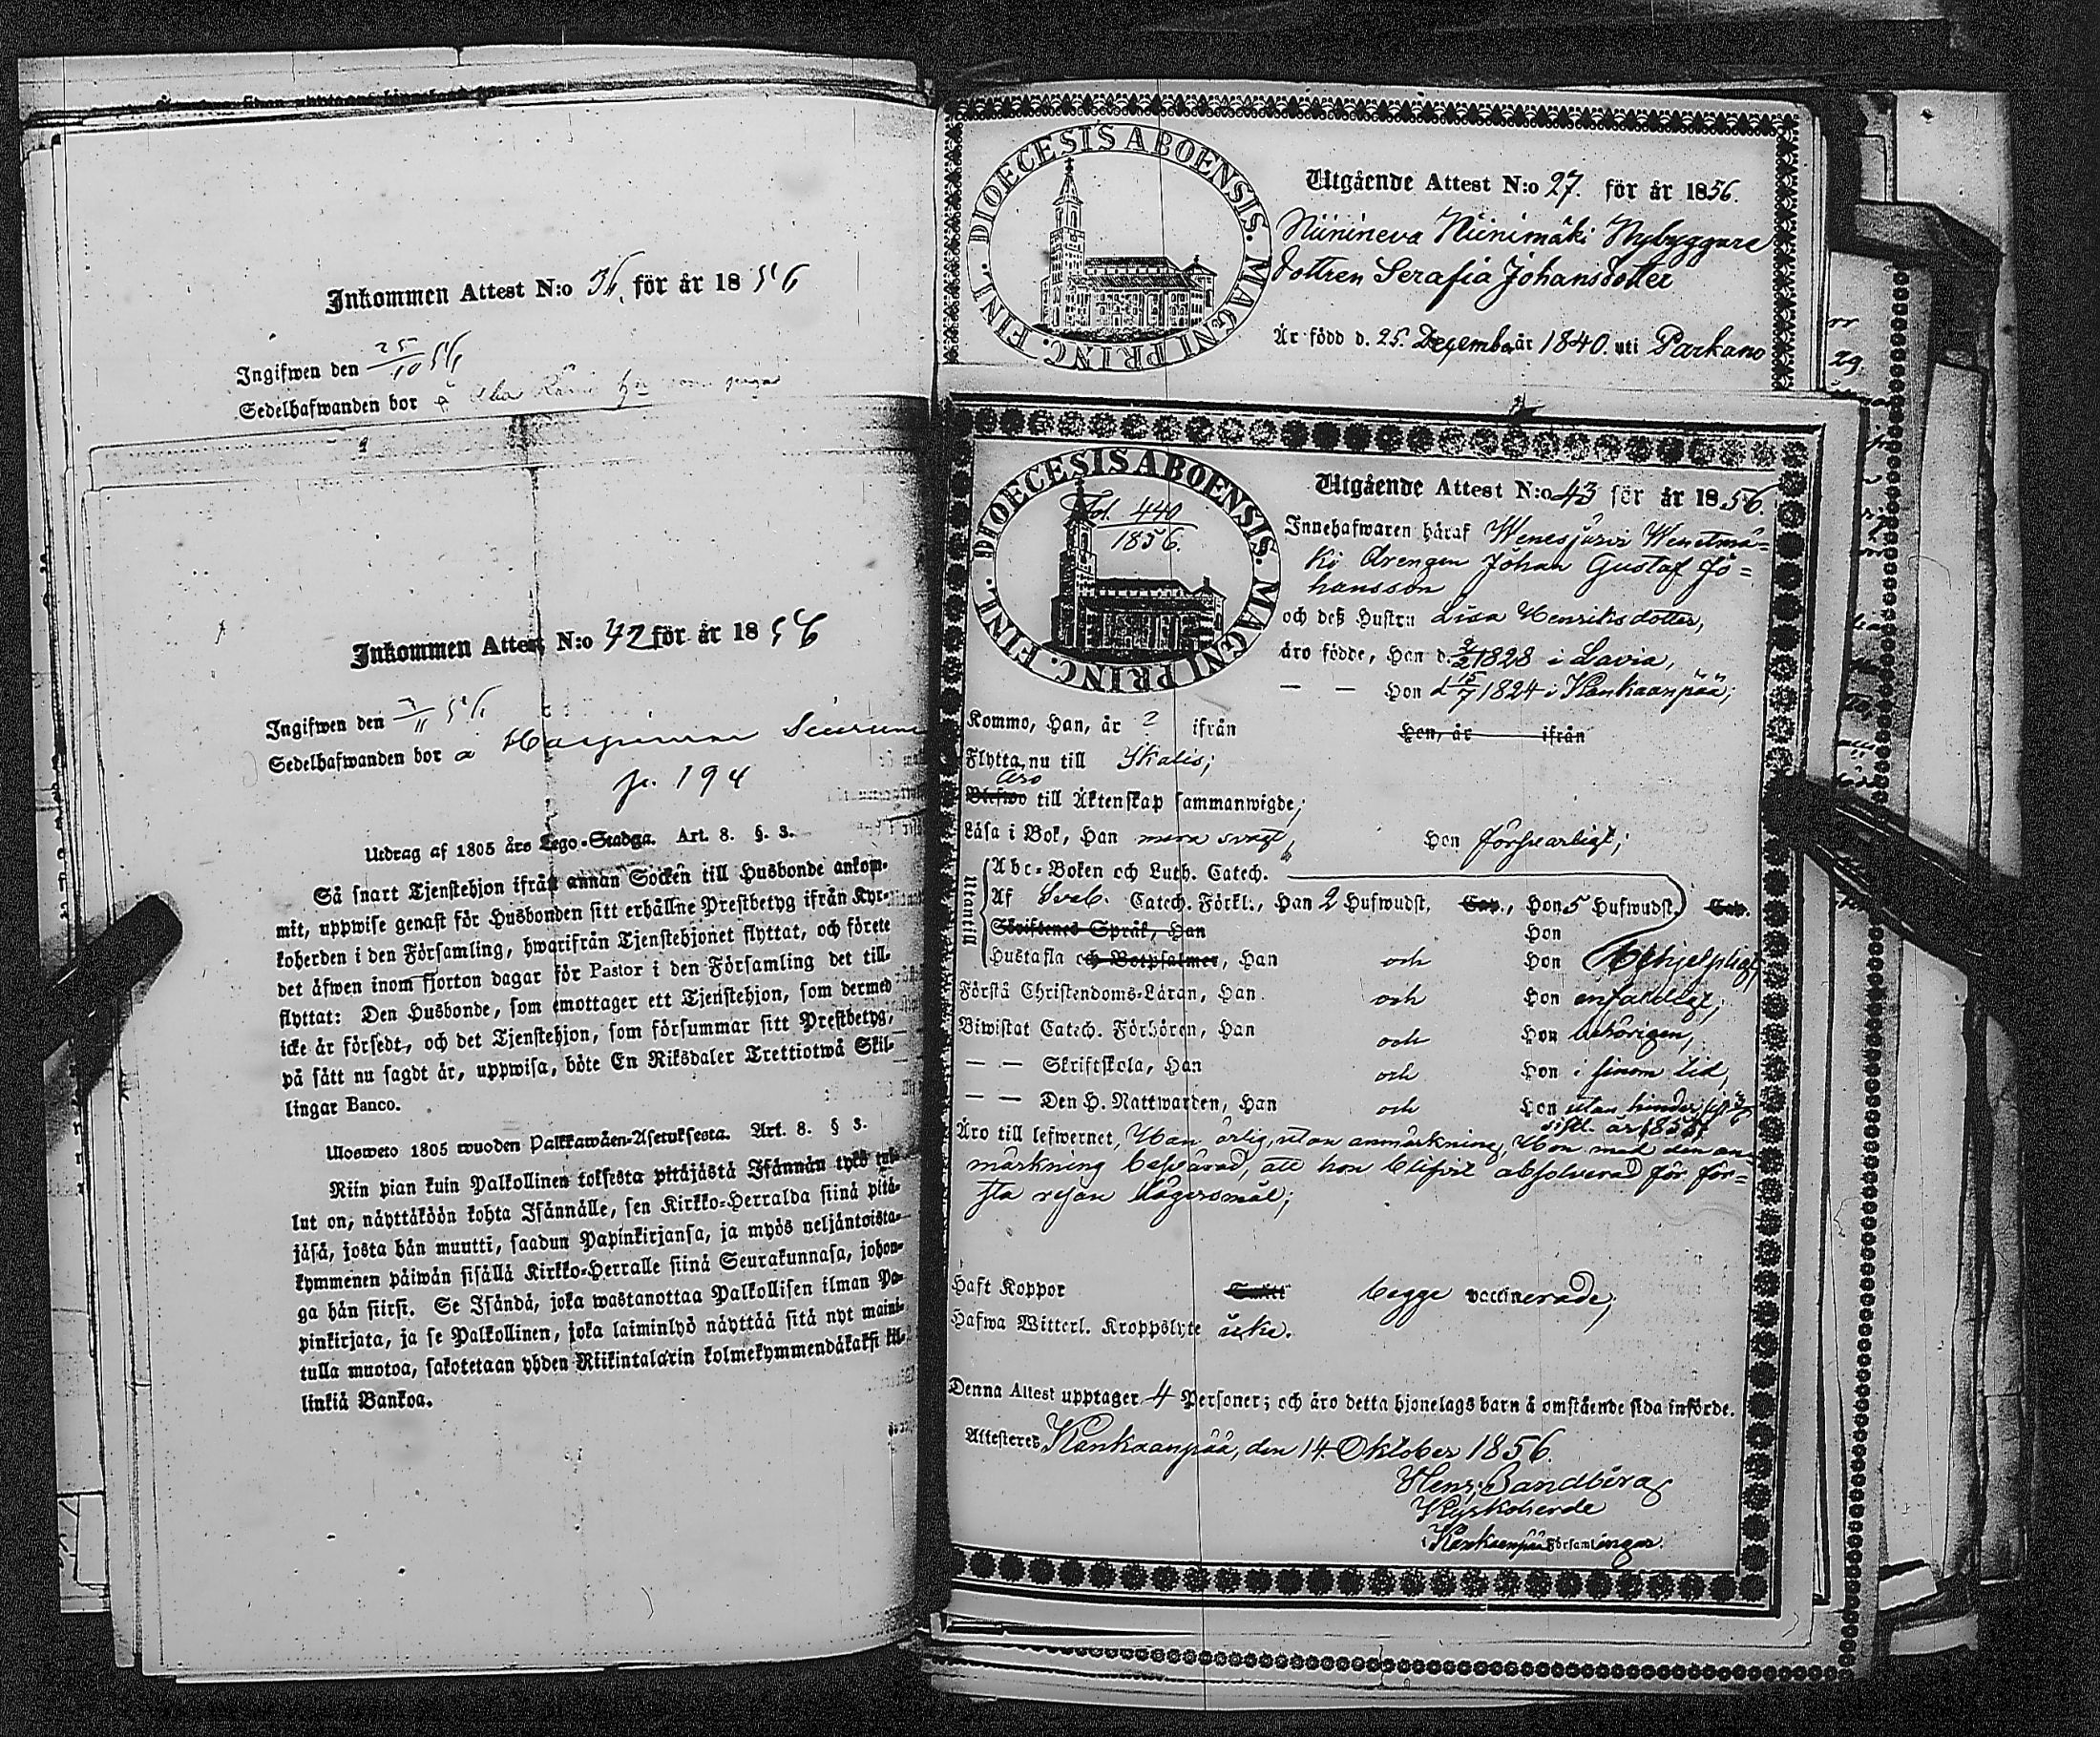 Inkommen Attest N:o 36. för år 1856
Ingifwen den 25/10 56
Sedelhafwanden bor å
Inkommen Attest N:o 42 för år 1856
Ingifwen den 7/11 56
Sedelhafwanden bor å
p. 194
Utdrag af 1805 års Lego-Stadga. Art. 8. §. 3.
Så snart Tjenstehjon ifrån annan Socken till Husbonde ankom-
mit, uppwise genast för Husbonden sitt erhållne Prestbetyg ifrån Kyr-
koherden i den Församling, hwarifrån Tjenstehjonet flyttat, och förete
det åfwen inom fjorton dagar för Pastor i den Församling det till-
flyttat: Den Husbonde, som emottager ett Tjenstehjon, som dermed
icke är försedt, och det Tjenstehjon, som försummar sitt Prestbetyg,
på sätt nu sagdt är, uppwisa, böte En Riksdaler Trettiotwå Skil-
lingar Banco.
Ulosweto 1805 wuoden Palkkawäen-Asetuksesta. Art. 8. § 3.
Niin pian kuin Palkollinen toisesta pitäjästä Isännän tykö tul-
lut on, näyttäköön kohta Isännälle, sen Kirkko-Herralda siinä pitä-
jäsä, josta hän muutti, saadun Papinkirjansa, ja myös neljäntoista-
kymmenen päiwän sisällä Kirkko-Herralle siinä Seurakunnasa, johon-
ga hän siirsi. Se Isändä, joka wastanottaa Palkollisen ilman Pa-
pinkirjata, ja se Palkollinen, joka laiminlyö näyttää sitä nyt maini-
tulla muotoa, sakotetaan yhden Riikintalarin kolmekymmendäkaksi kil-
linkiä Bankoa.
DIOECESIS ABOENSIS. MAGNI PRINC. FINL.
Utgående Attest N:o 27. för år 1856.
Niinineva Niinimäki Nybyggare
dottren Serafia Johansdotter
Är född d. 25. December år 1840. uti Parkano
DIOECESIS ABOENSIS. MAGNI PRINC. FINL.
Fol. 440
1856.
Utgående Attest N:o 43 för år 1856.
Innehafwaren håraf Wenesjärvi Wenetmä=
ki Drengen Johan Gustaf Jo=
hansson
och deß Hustru Lisa Henriksdotter,
äro födde, Han d. 2/2 1828 i Lavia,
— — Hon d 15/7 1824 i Kankaanpää;
Kommo, Han, år ? ifrån Hon, år ifrån
Flytta nu till Ikalis;
äro
Blefwo till Äktenskap sammanwigde;
Läsa i Bok, Han mera svagt, Hon försvarligt;
Utantill
Abc-Boken och Luth. Catech.
Af Sveb. Catech. Förkl., Han 2 Hufwudst. Cap., Hon 5 Hufwudst. Cap.
Skriftenes Språk, Han Hon
Hustafla och Botpsalmer, Han och Hon behjelpligt,
Förstå Christendoms-Läran, Han och Hon enfaldigt;
Biwistat Catech. Förhören, Han och Hon behörigen,
— — Skriftskola, Han och Hon i sinom tid,
— — Den H. Nattwarden, Han och Hon utan hinder,
sistl. år 1856;
Äro till lefwernet, Han ärlig, utan anmärkning, Hon med den an-
märkning bespärad, att hon blifvit absolverad för för=
sta resan lägersmål;
Haft Koppor begge vaccinerade;
Hafwa Witterl. Kroppslyte icke.
Denna Attest upptager 4 Personer; och äro detta hjonelags barn å omstående sida införde.
Attesteres Kankaanpää, den 14. Oktober 1856.
Henr. Sandberg
Kyrkoherde
i Kankaanpää Församlingar.